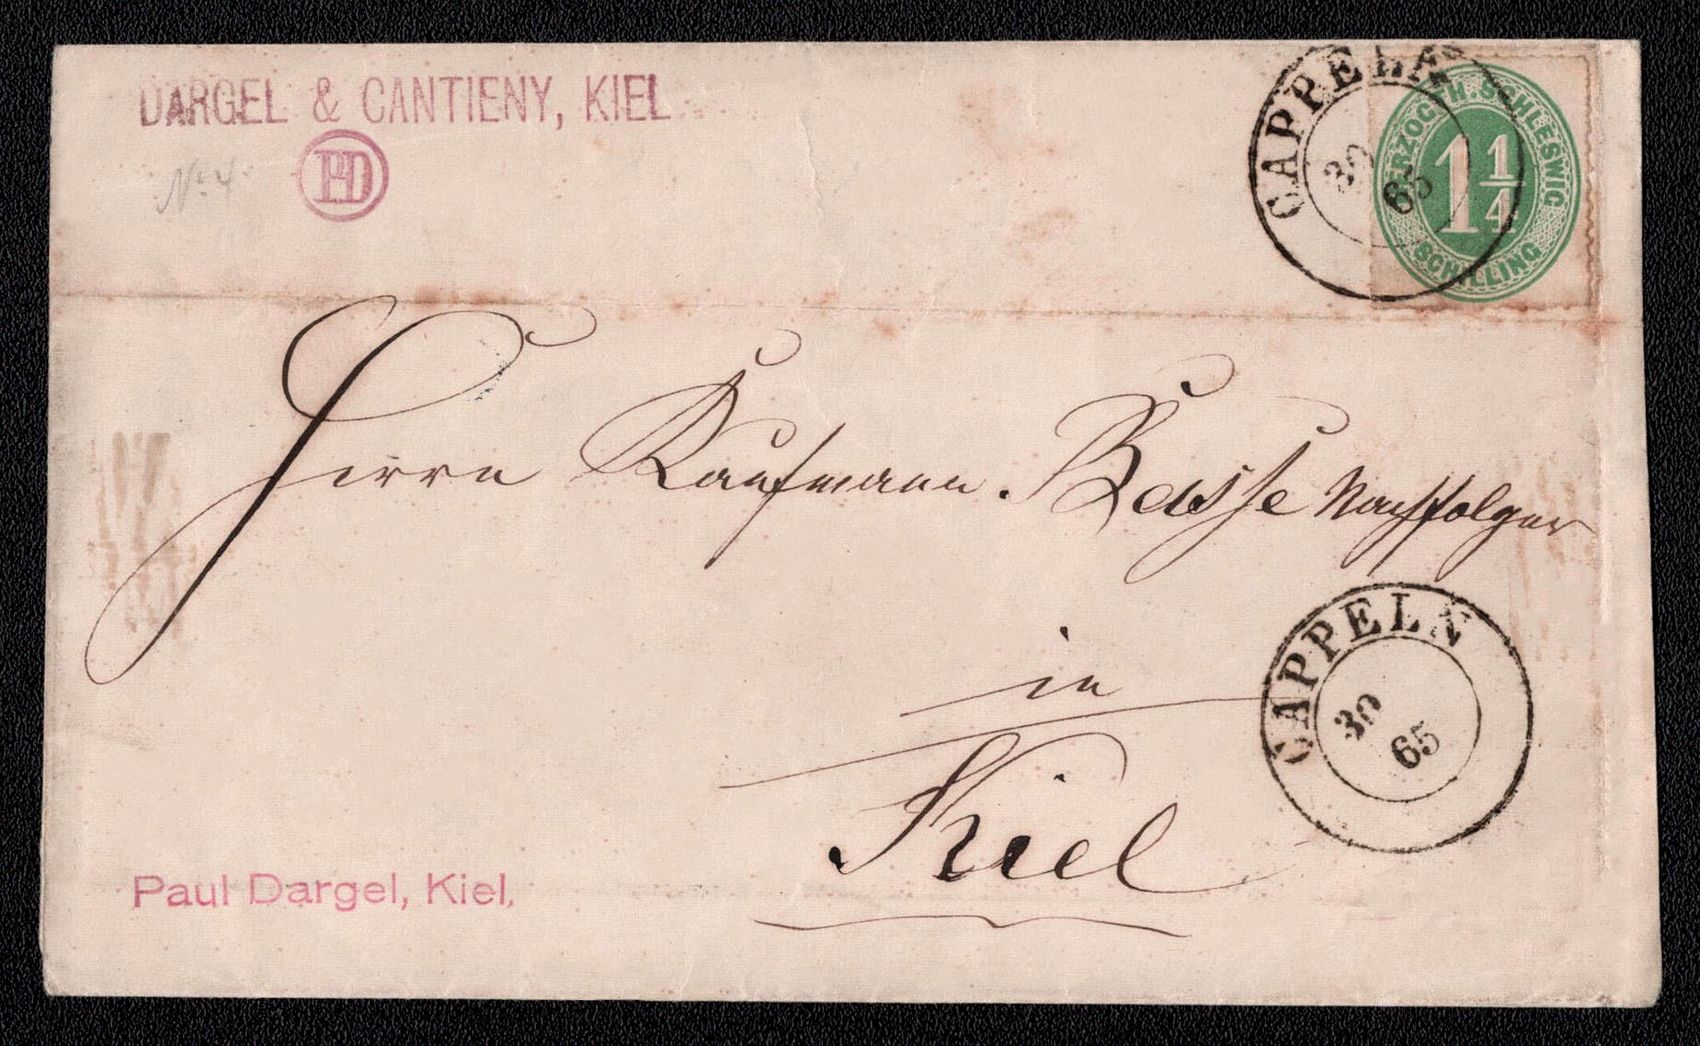 DARGEL & CANTIENY, KIEL
PD
No 4
CAPPELN
30
65
HERZOGTH. SCHLESWIG
1 1/4
SCHILLING
Herrn Kaufmann Basse Nachfolger
in
Kiel
CAPPELN
30
65
Paul Dargel, Kiel.